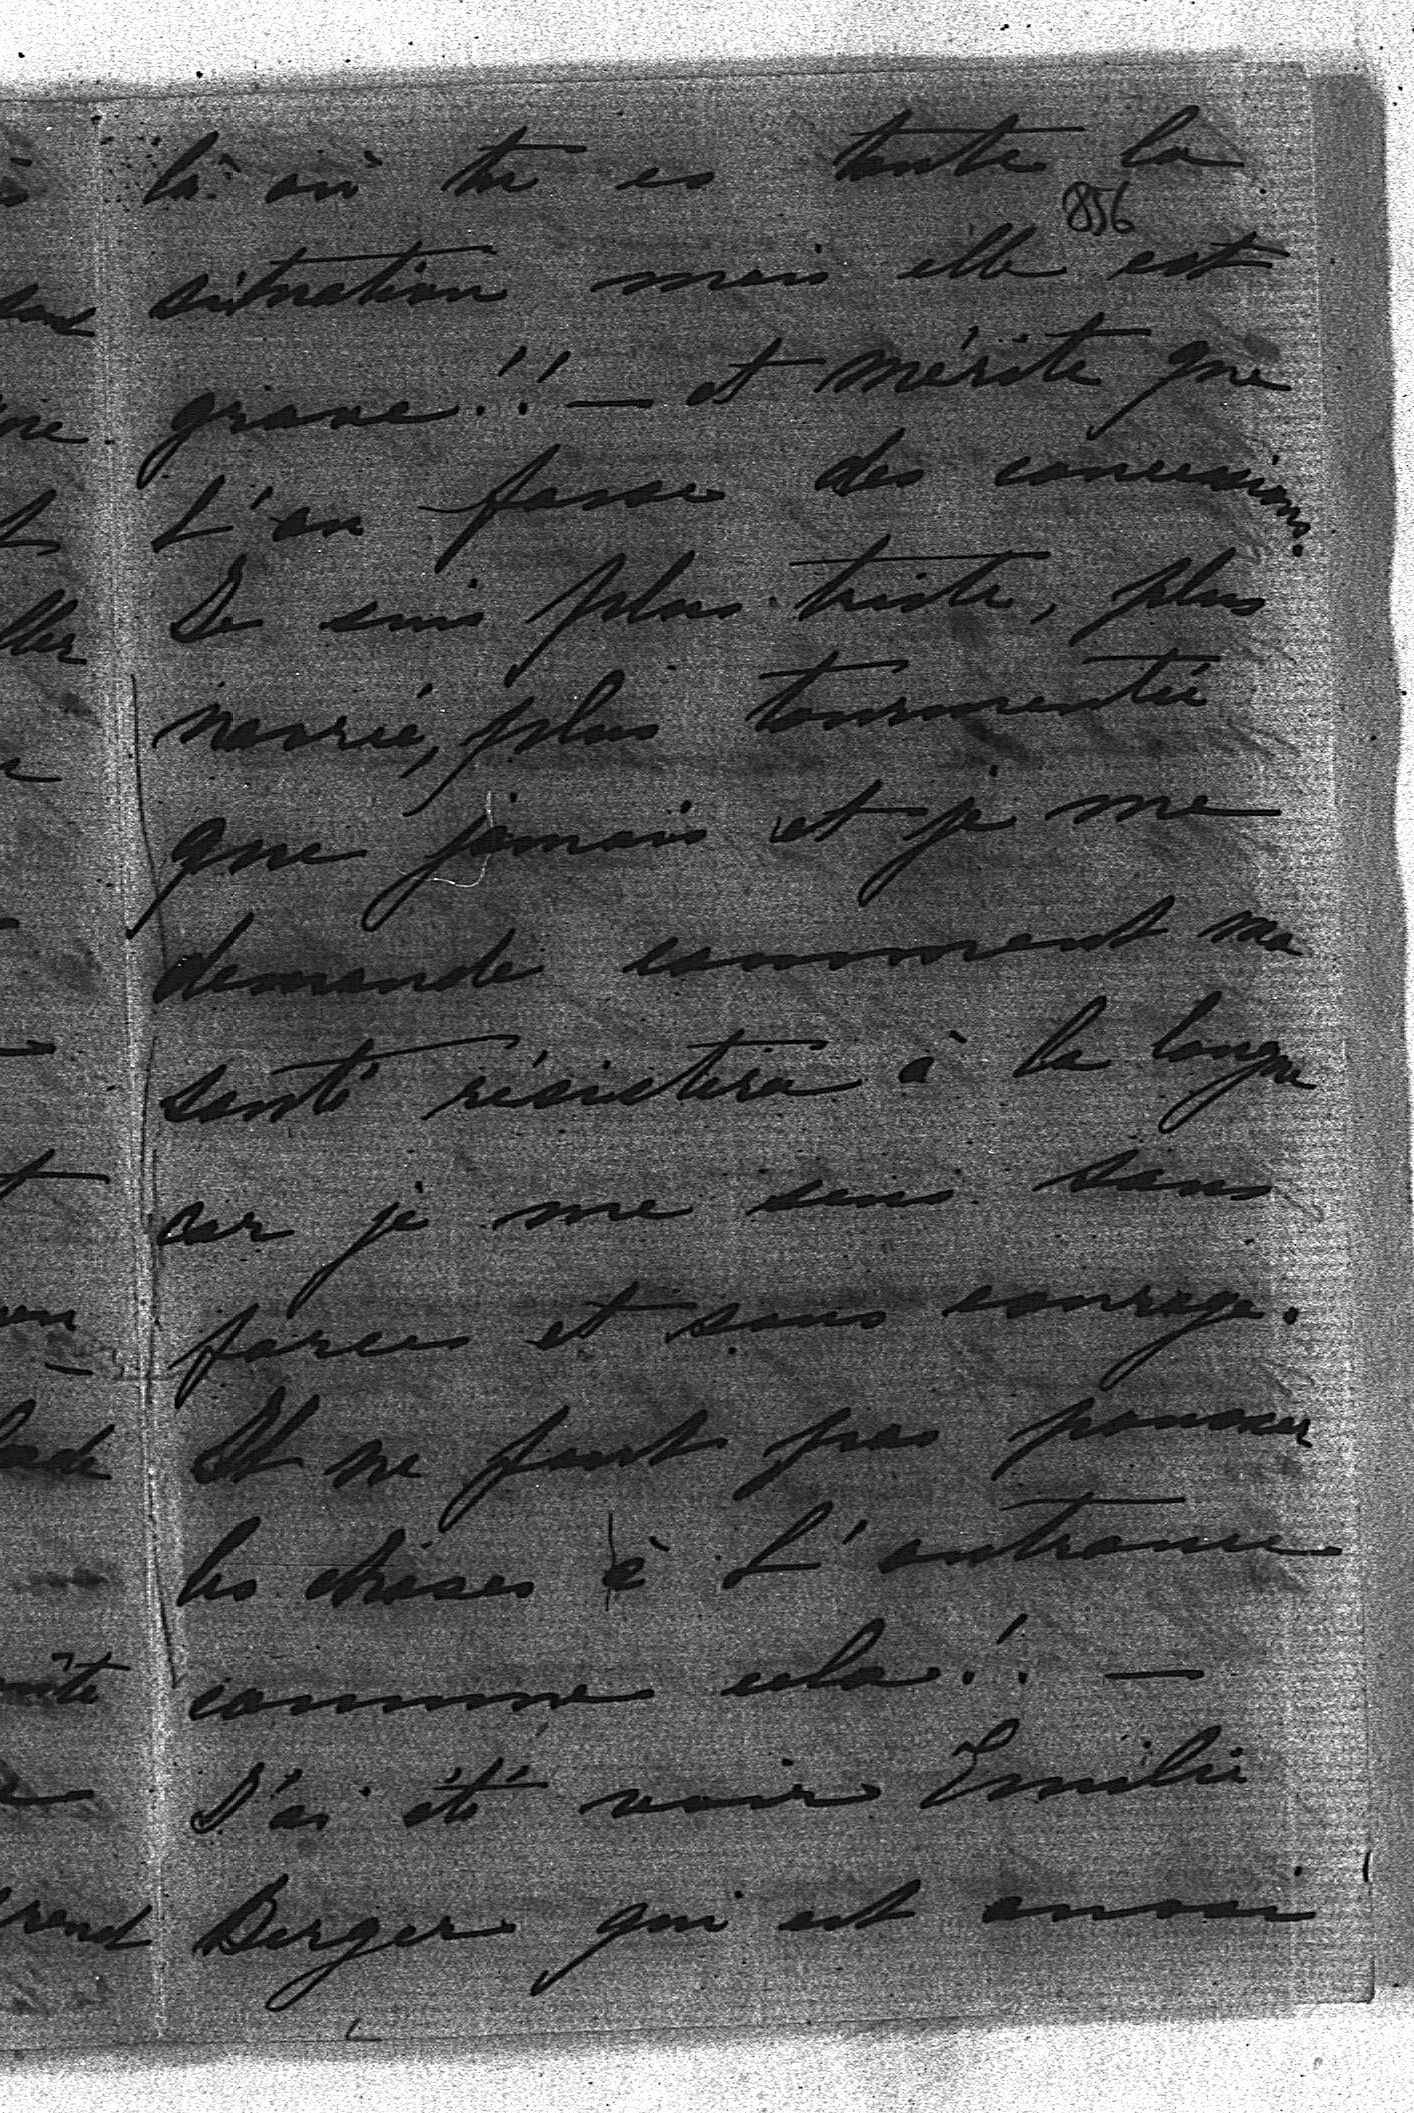 là où tu es toute la
856
situation mais elle est
grave!! — et mérite que
L'on fasse des concessions.
Je suis plus triste, plus
navrée, plus tourmentée
que jamais et je me
demande comment ma
santé résistera à la longue
car je me sens sans
forces et sans courage.
Il ne faut pas pousser
les choses à L'outrance
comme cela! —
J'ai été voir Emilie
Berger qui est aussi